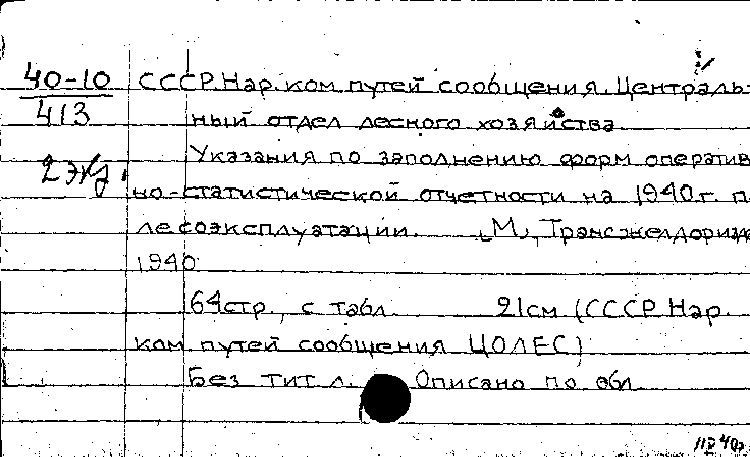 40-10 СССР. Нар. ком. путей сообщения. Централь-
413 ный отдел лесного хозяйства.
Указания по заполнению форм оператив
2 экз. но-статистической отчетности на 1940 г. п
лесоэксплуатации. [М], Трансжелдоризд
1940
64 стр., с табл. 21 см (СССР Нар.
ком путей сообщения ЦОЛЕС)
Без тит л. Описано по обл.